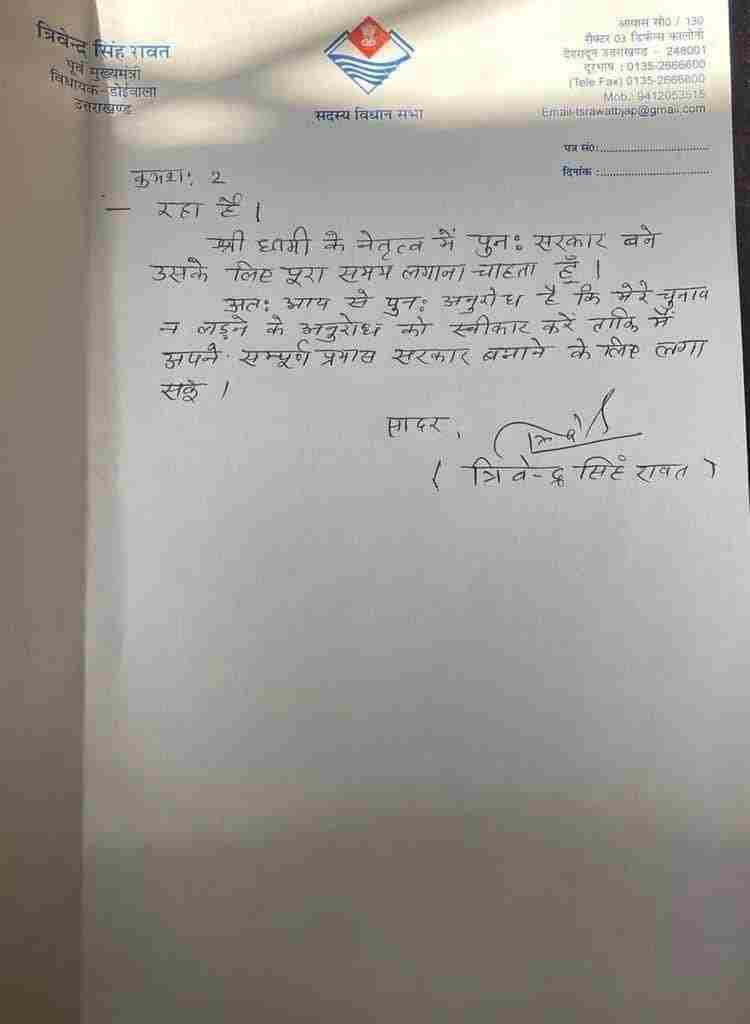 त्रिवेन्द्र सिंह रावत
पूर्व मुख्यमंत्री
विधायक-डोईवाला
उत्तराखण्ड
सदस्य विधान सभा
आवास सं0 / 130
सैक्टर 03 डिफेन्स कालोनी
देहरादून उत्तराखण्ड - 248001
दूरभाष : 0135-2666600
(Tele Fax) 0135-2666800
Mob.: 9412053615
Email-tsrawatbjap@gmail.com
पत्र सं०:
दिनांक :
क्रमश: 2
— रहा है ।
श्री धामी के नेतृत्व में पुन: सरकार बने
उसके लिए पूरा समय लगाना चाहता हूँ ।
अत: आप से पुन: अनुरोध है कि मेरे चुनाव
न लड़ने के अनुरोध को स्वीकार करें ताकि मैं
अपने सम्पूर्ण प्रयास सरकार बनाने के लिए लगा
सकूं ।
सादर,
( त्रिवेन्द्र सिंह रावत )